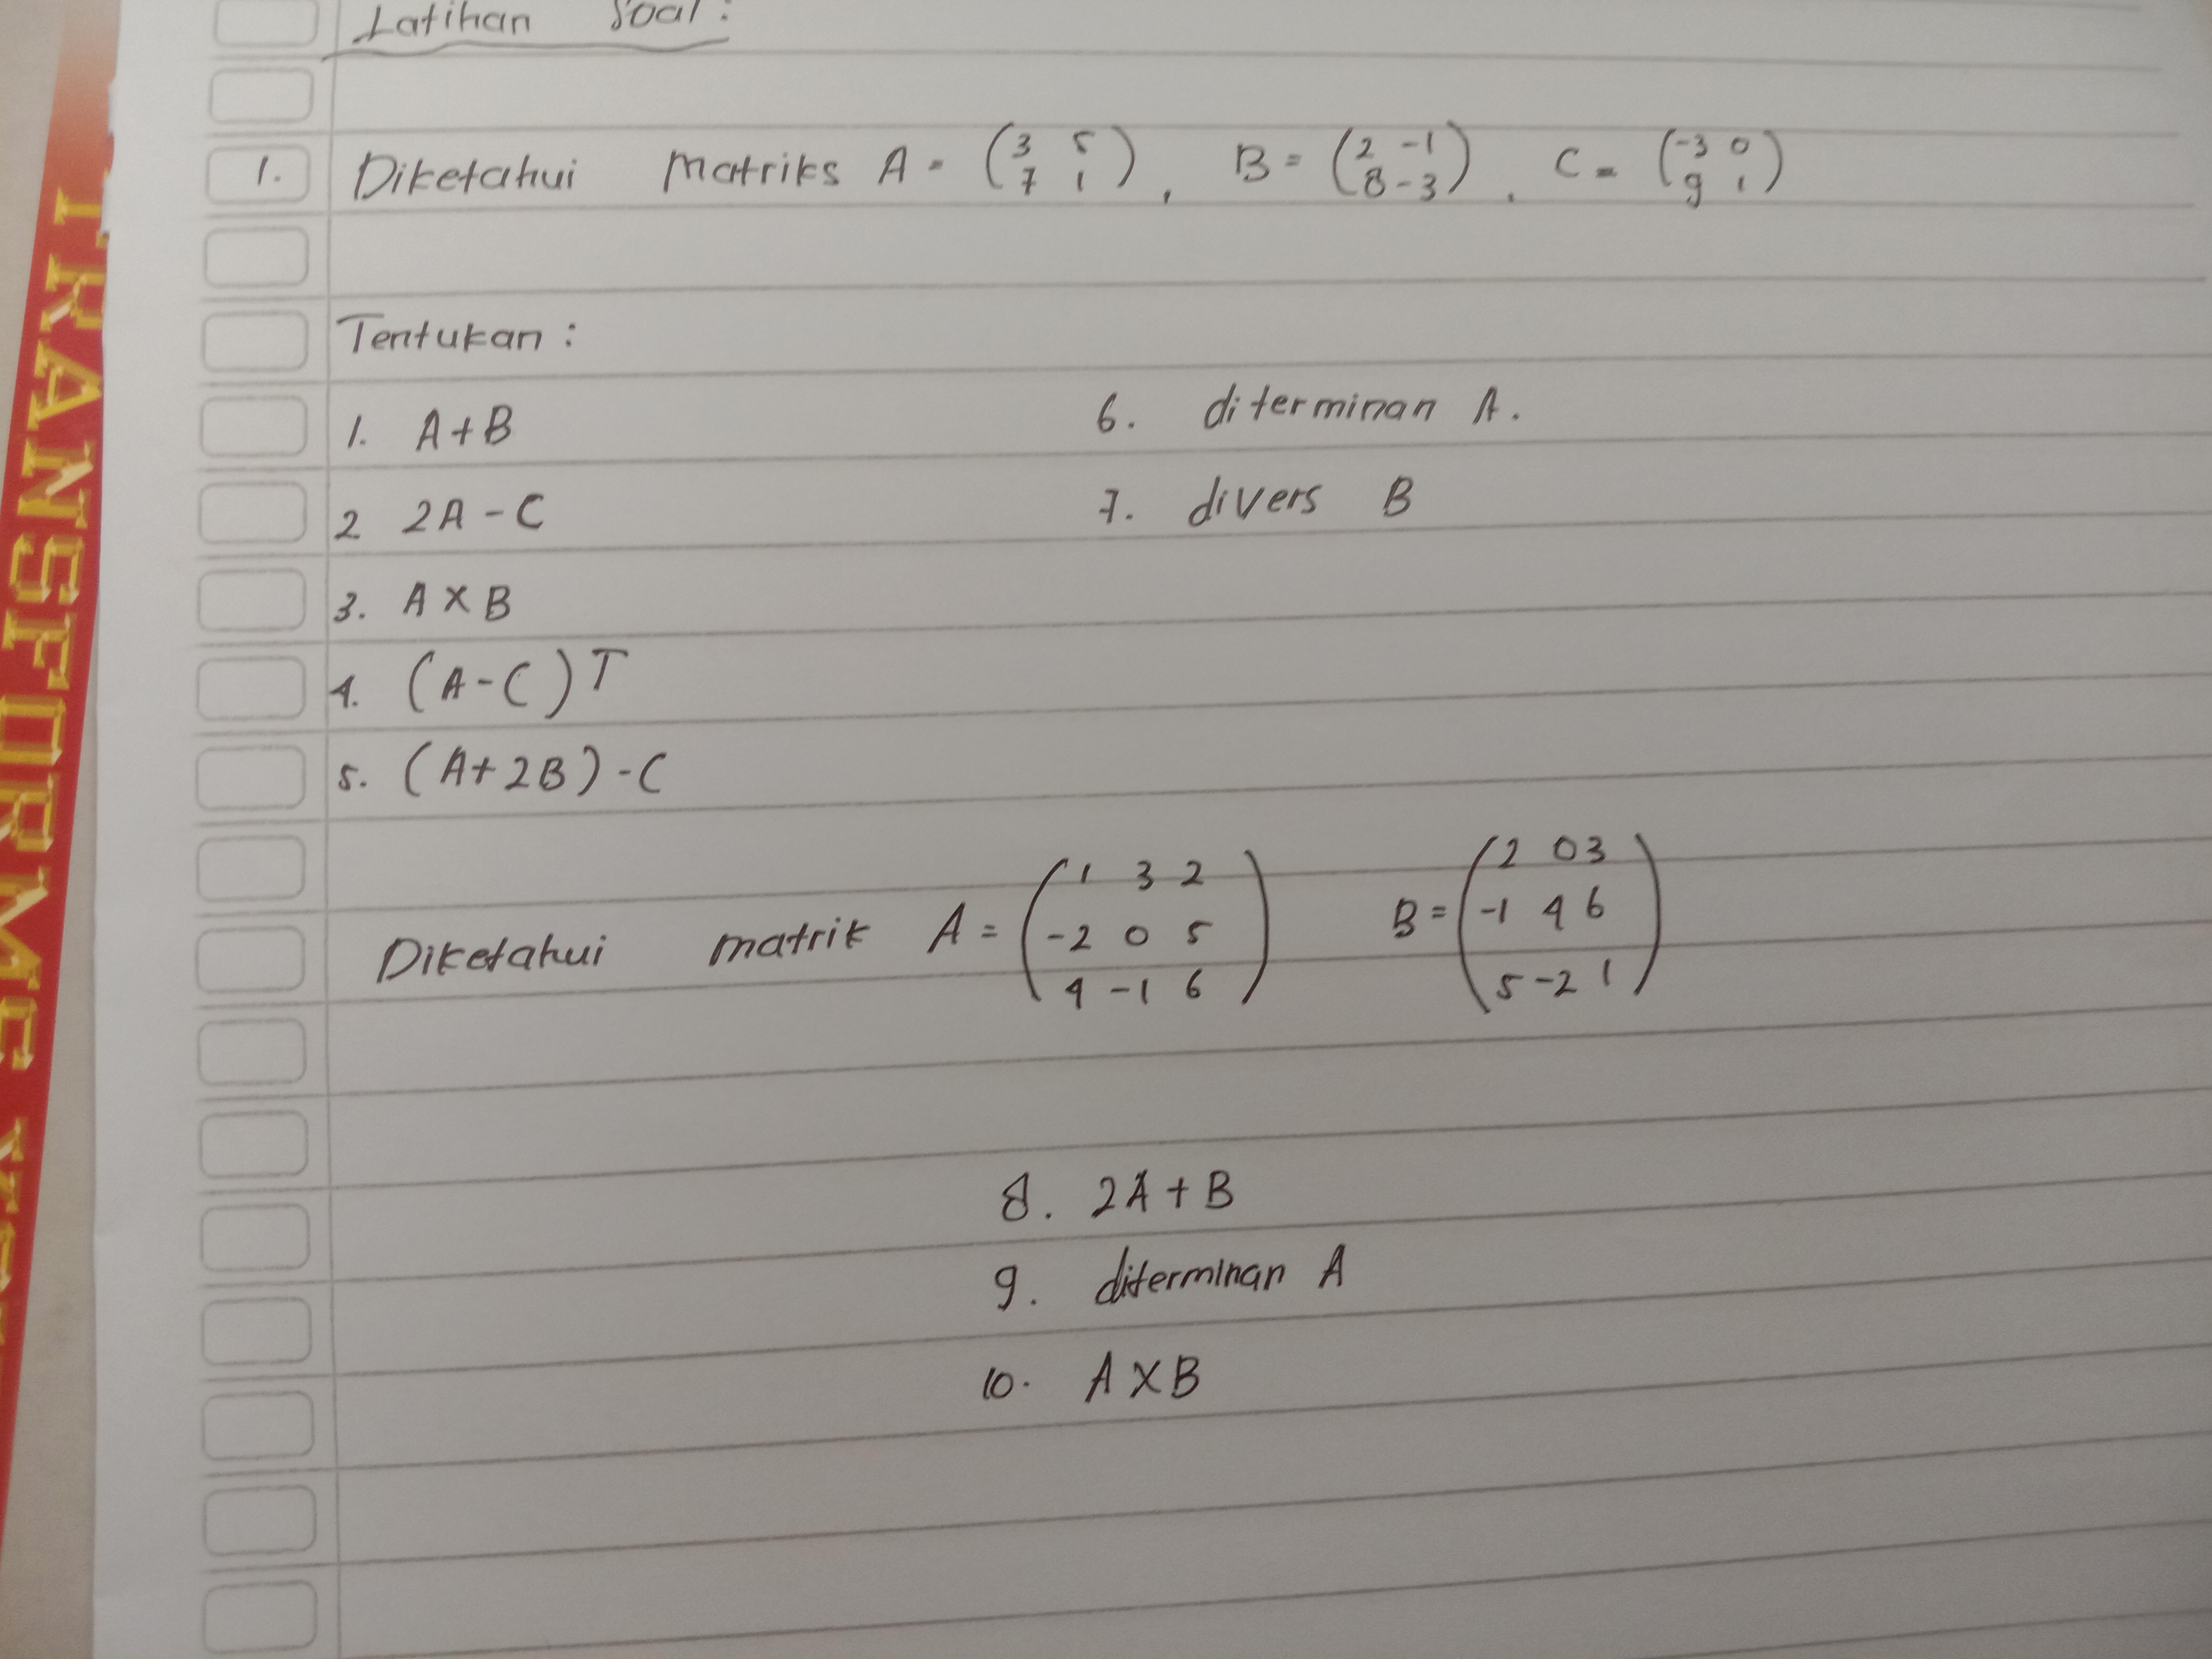 Latihan Soal :
1. Diketahui Matriks A = (3 5 / 7 1), B = (2 -1 / 8 -3), C = (-3 0 / 9 1)
Tentukan :
1. A+B
2 2A-C
3. A X B
4. (A-C)T
5. (A+2B)-C
6. diterminan A.
7. divers B
Diketahui matrik A = (1 3 2 / -2 0 5 / 4 -1 6) B = (2 0 3 / -1 4 6 / 5 -2 1)
8. 2A + B
9. diterminan A
10. A X B
TRANSFORMS